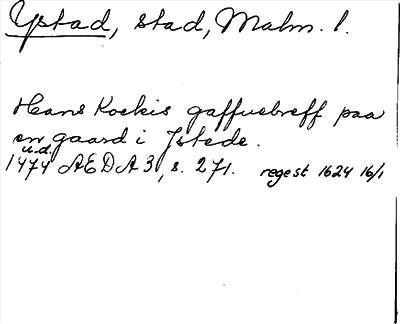 Ystad, stad, Malm. l.
Hans Kockis gaffuebreff paa
en gaard i Jstede.
u.d.
1474 AEDA 3, s. 271. regest 1624 16/1